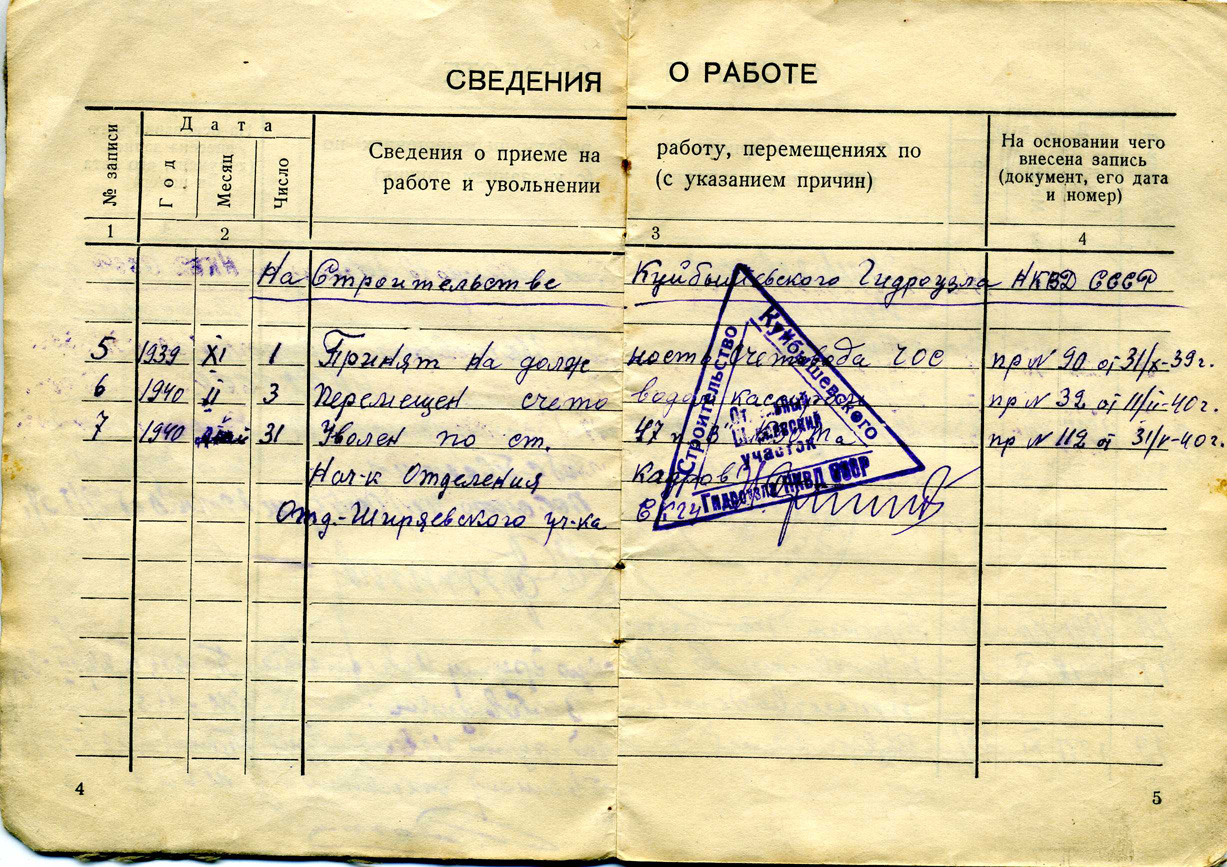 СВЕДЕНИЯ О РАБОТЕ
№ записи
Дата
Год
Месяц
Число
Сведения о приеме на работу, перемещениях по
работе и увольнении (с указанием причин)
На основании чего
внесена запись
(документ, его дата
и номер)
1 2 3 4
На Строительстве Куйбышевского Гидроузла НКВД СССР
5 1939 XI 1 Принят на должность Счетовода ЧОС пр N 90 от 31/X-39г.
6 1940 II 3 Перемещен счетоводом кассиром пр N 32 от 11/II-40г.
7 1940 май 31 Уволен по ст. 47 п. "В" пр N 112 от 31/V-40г.
Нач-к Отделения кадров
Отд-Ширяевского уч-ка СКГУ
Строительство
Куйбышевского
Гидроузла НКВД СССР
участок
4
5